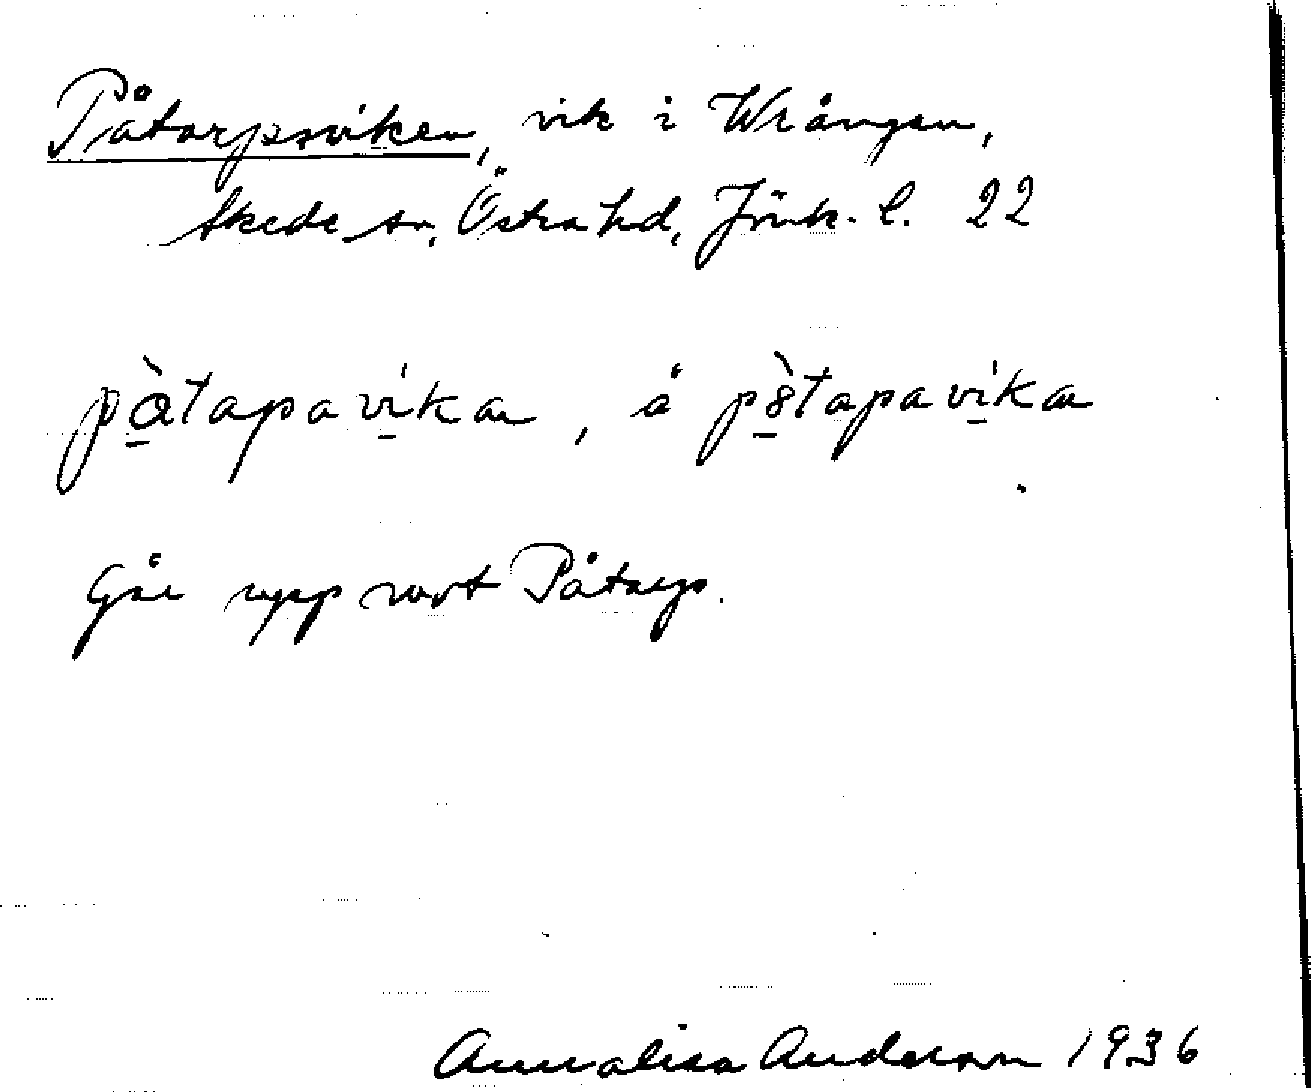 Påtorpsviken, vik i Wrången,
Skede sn, Östra hd, Jönk. l. 22
pàtapavika, å pòtapavika
Går upp mot Påtorp.
Annalisa Anderson 1936